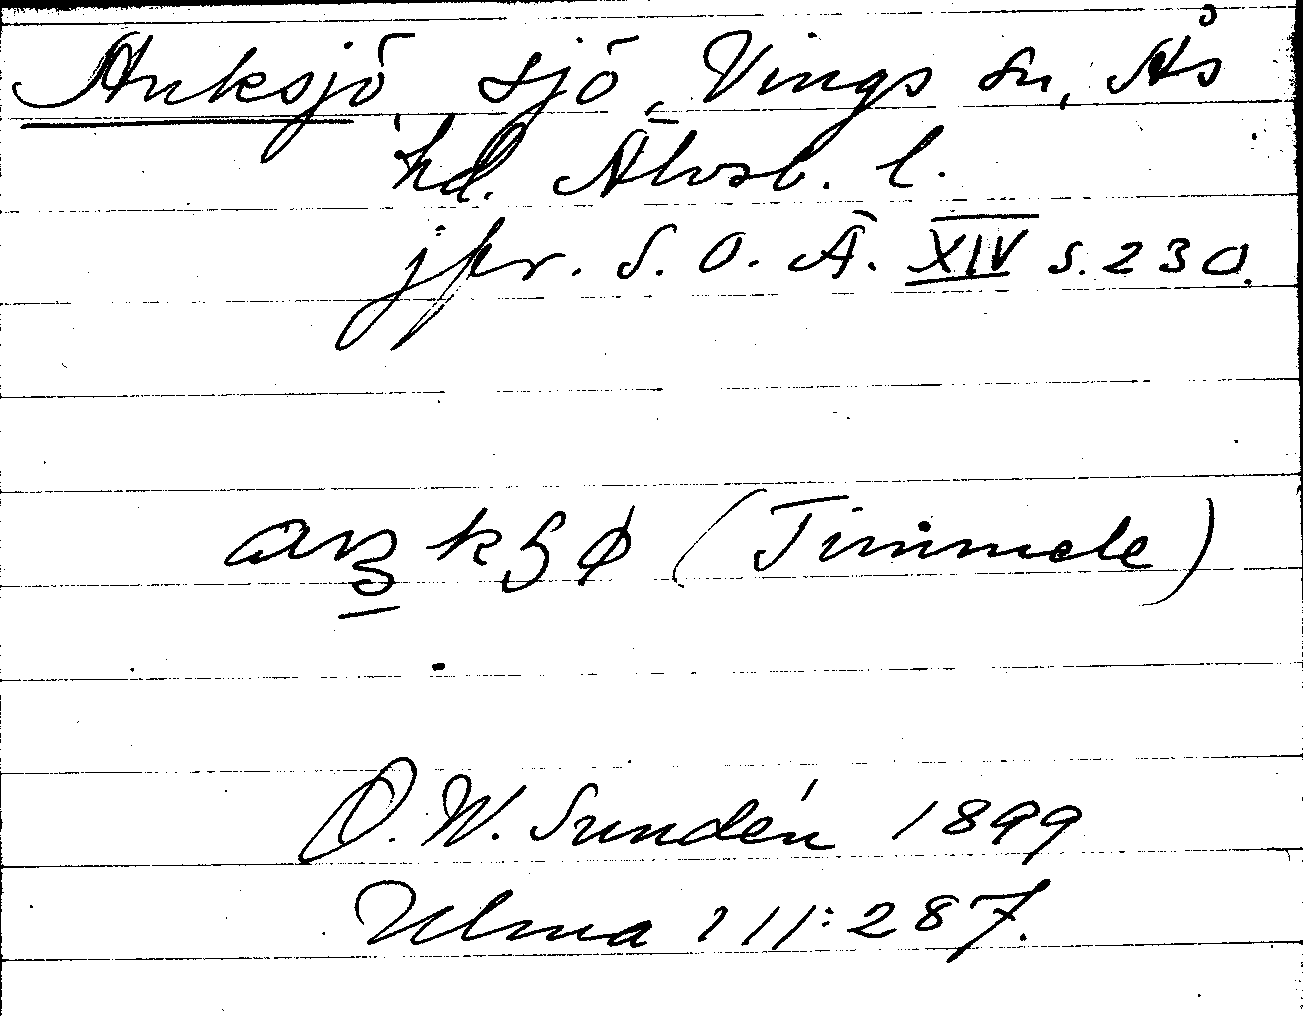 Anksjö, sjö, Vings sn, Ås
hd. Älvsb. l.
jfr. S. O. Ä. XIV s. 230.
(Timmele)
D. W. Sundén 1899
Ulma 111:287.